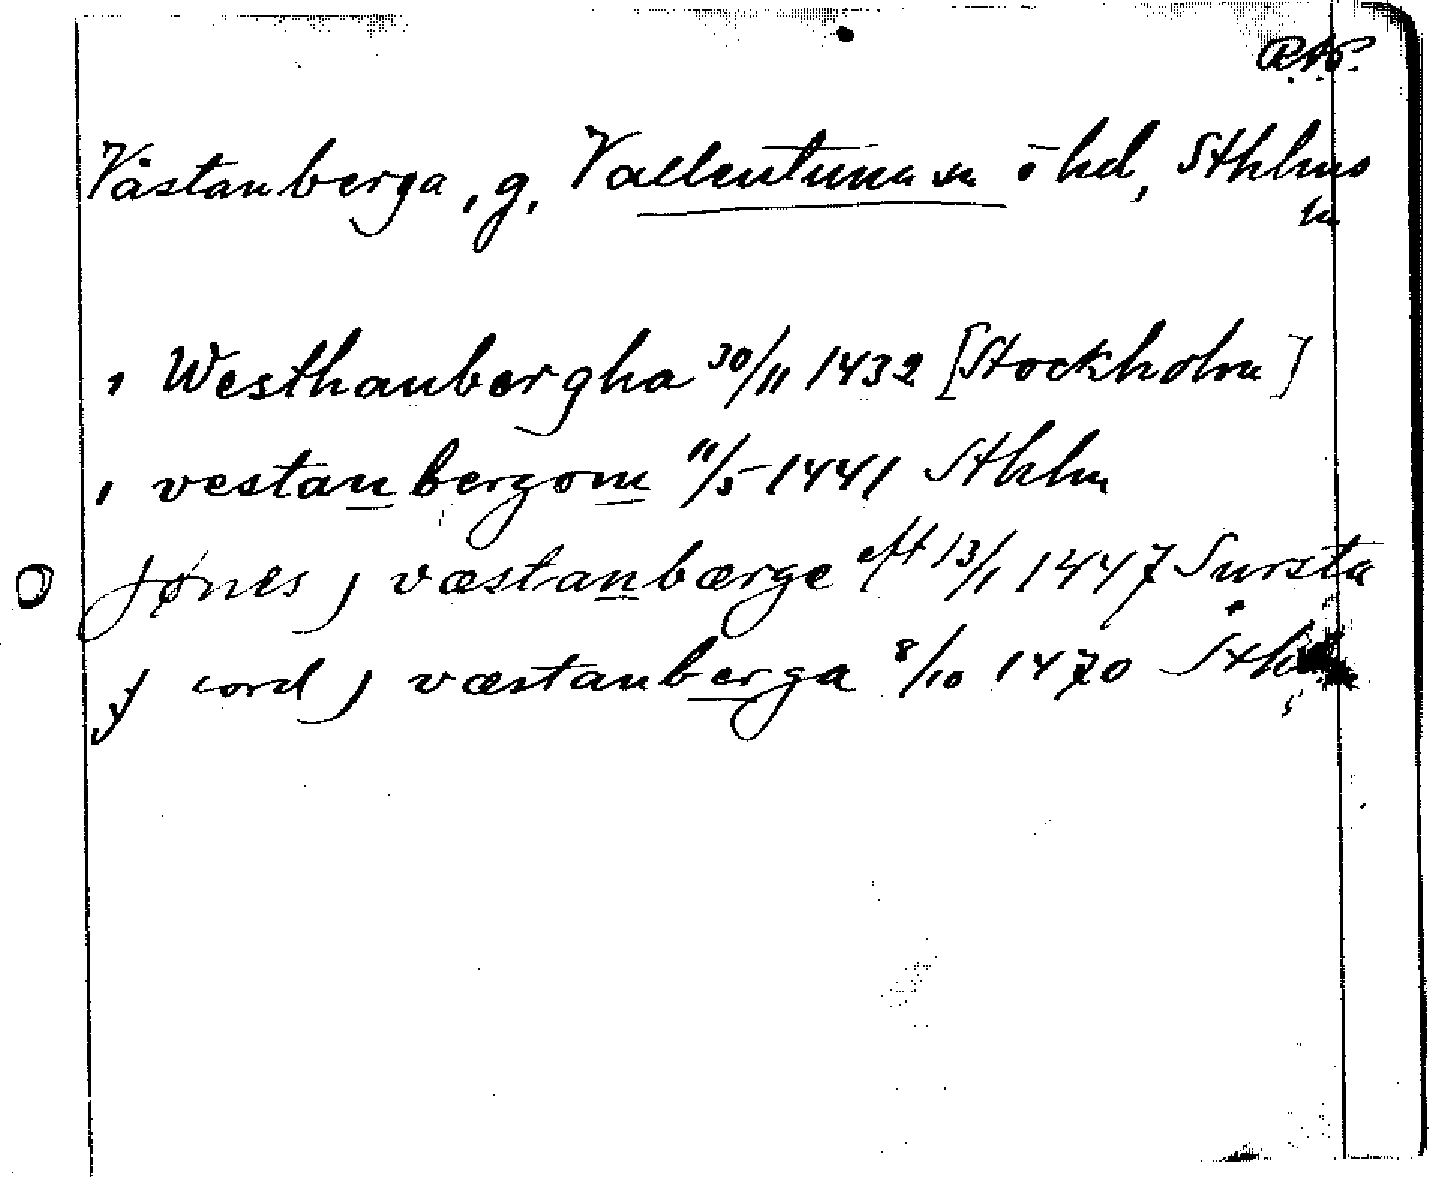 R.A.P.
Västanberga, g, Vallentuna sn ö hd, Sthlms
ln
i Westhanbergha 30/11 1432 [Stockholm]
i vestanbergom 11/5 1441 Sthlm
Jønes j væstanbærge eft 13/1 1447 Sursta
j iord j væstanberga 8/10 1470